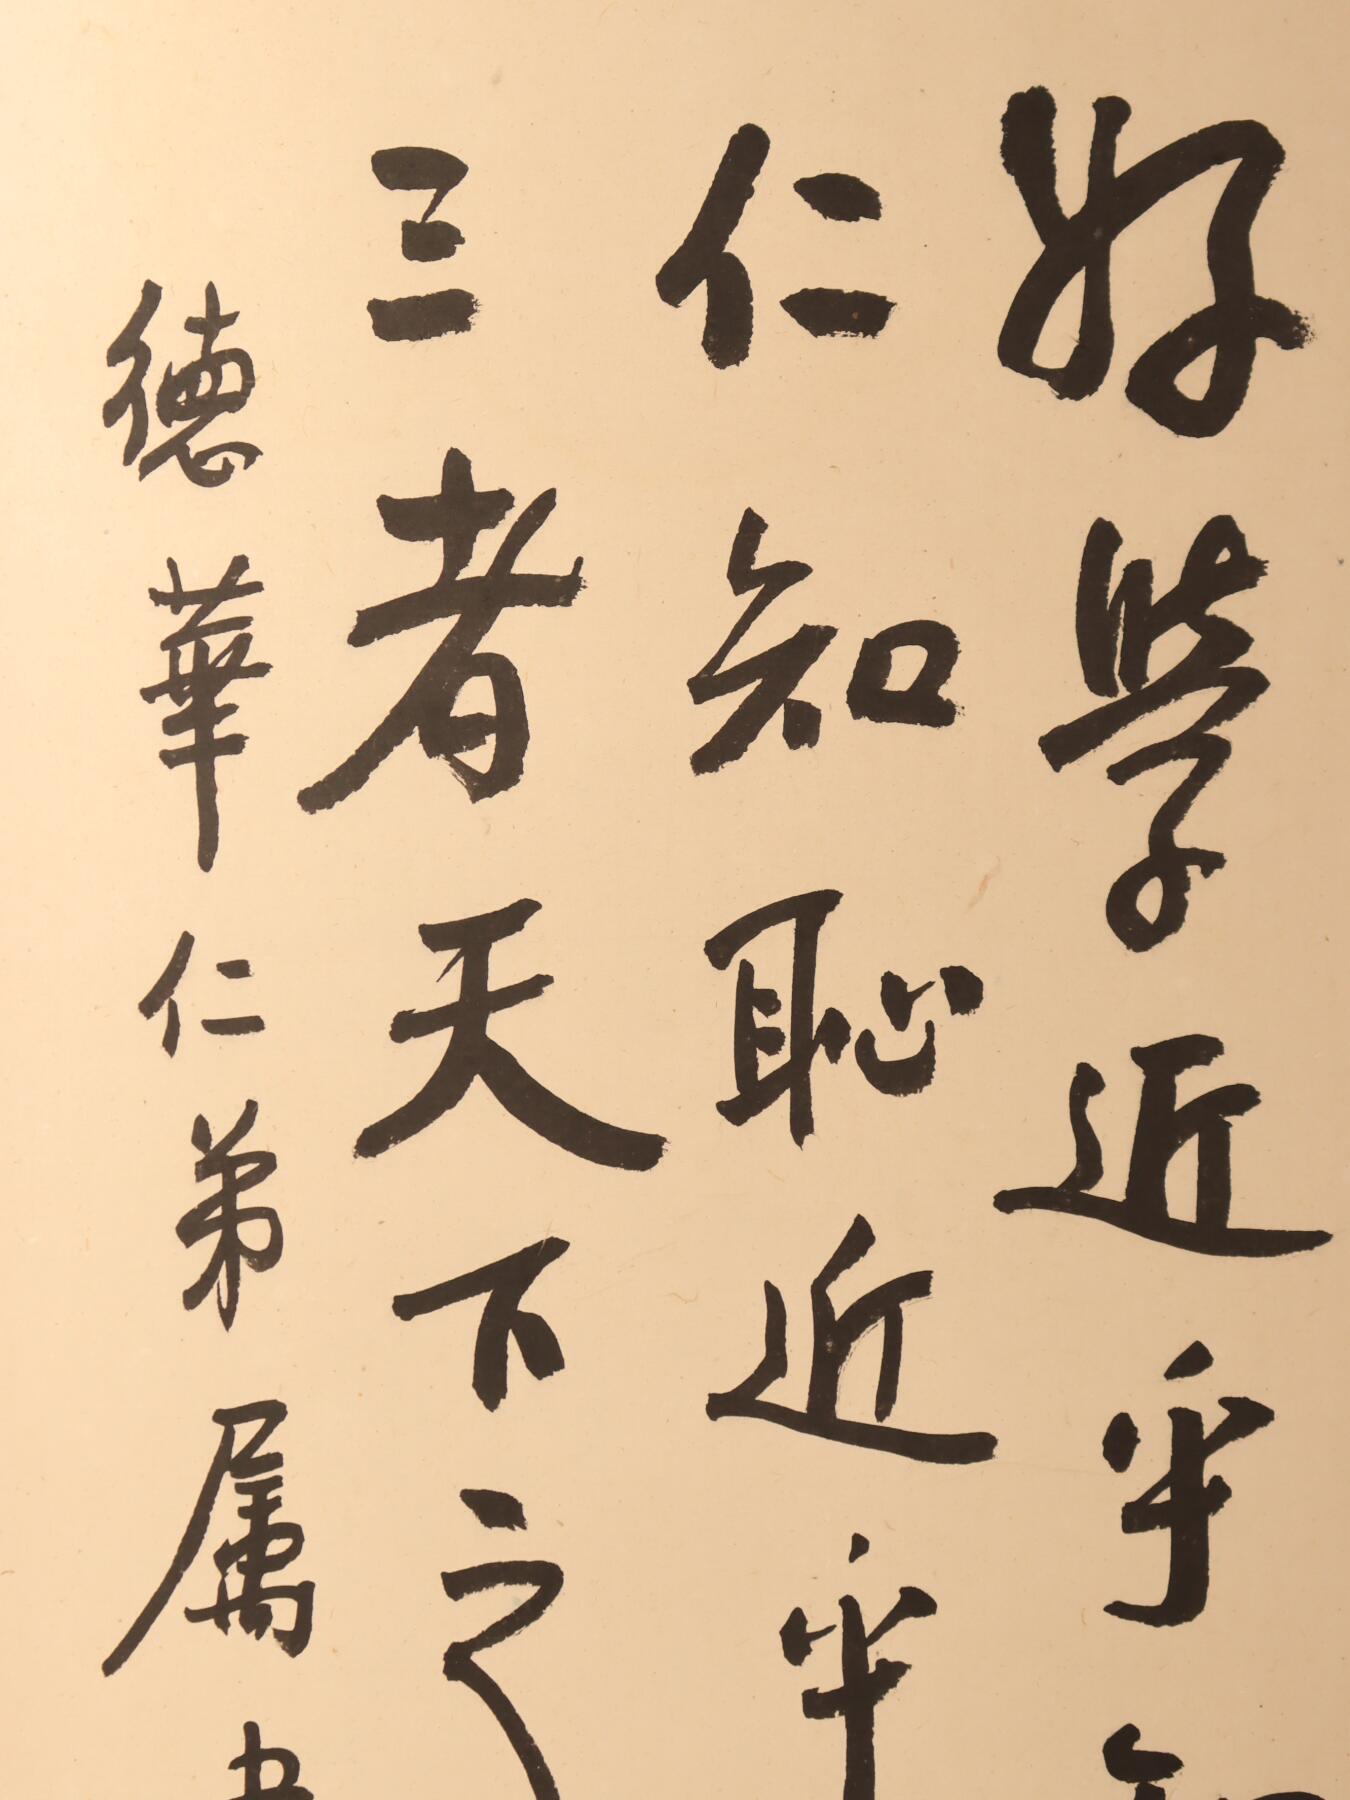 好學近乎知
仁知恥近乎
三者天下之
德華仁弟属書